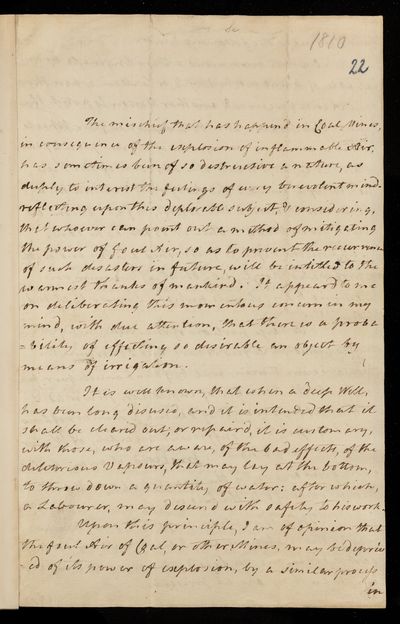 1810
22
The mischief that has happend in Coal Mines,
in consequence of the explosion of inflammable Air,
has sometimes been of so destructive a nature, as
deeply to interest the feelings of every benevolent mind.
reflecting upon this deplorable subject, & considering,
that whoever can point out a method of mitigating
the power of foul Air, so as to prevent the recurrence
of such disasters in future, will be intitled to the
warmest thanks of mankind. It appeard to me
on deliberating this momentous concern in my
mind, with due attention, that there is a proba
=bility of effecting so desirable an object by
means of irrigation.
It is well known, that when a deep Well,
has been long disused, and it is intended that it
shall be cleared out, or repaird, it is customary,
with those, who are aware, of the bad effects, of the
deleterious Vapours, that may lay at the bottom,
to throw down a quantity of water: after which,
a Labourer, may descend with safety to his work.
Upon this principle, I am of opinion that
the foul Air of Coal, or other Mines, may be depriv
=ed of its power of explosion, by a similar process
in